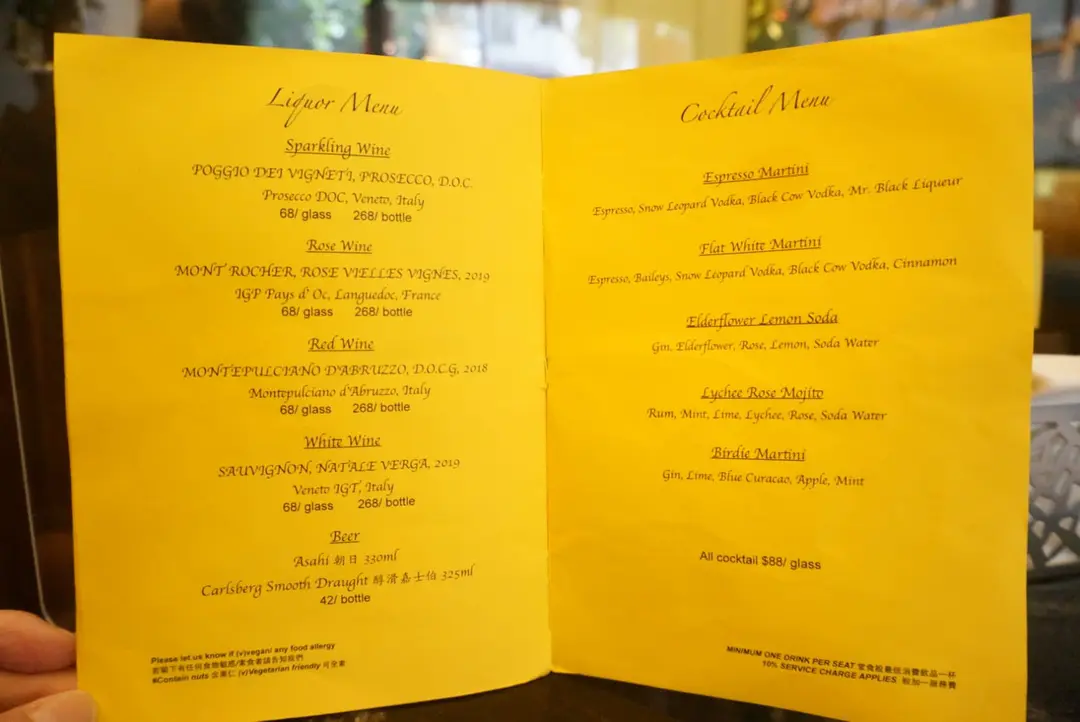 Liquor Menu
Sparkling Wine
POGGIO DEI VIGNETI, PROSECCO, D.O.C.
Prosecco DOC, Veneto, Italy
68/ glass 268/ bottle
Rose Wine
MONT ROCHER, ROSE VIELLES VIGNES, 2019
IGP Pays d' Oc, Languedoc, France
68/ glass 268/ bottle
Red Wine
MONTEPULCIANO D'ABRUZZO, D.O.C.G, 2018
Montepulciano d'Abruzzo, Italy
68/ glass 268/ bottle
White Wine
SAUVIGNON, NATALE VERGA, 2019
Veneto IGT, Italy
68/ glass 268/ bottle
Beer
Asahi 朝日 330ml
Carlsberg Smooth Draught 醇滑嘉士伯 325ml
42/ bottle
Please let us know if (v)vegan/ any food allergy
若閣下有任何食物敏感/素食者請告知我們
#Contain nuts 含果仁 (v)Vegetarian friendly 可全素
Cocktail Menu
Espresso Martini
Espresso, Snow Leopard Vodka, Black Cow Vodka, Mr. Black Liqueur
Flat White Martini
Espresso, Baileys, Snow Leopard Vodka, Black Cow Vodka, Cinnamon
Elderflower Lemon Soda
Gin, Elderflower, Rose, Lemon, Soda Water
Lychee Rose Mojito
Rum, Mint, Lime, Lychee, Rose, Soda Water
Birdie Martini
Gin, Lime, Blue Curacao, Apple, Mint
All cocktail $88/ glass
MINIMUM ONE DRINK PER SEAT 堂食設最低消費飲品一杯
10% SERVICE CHARGE APPLIES 設加一服務費